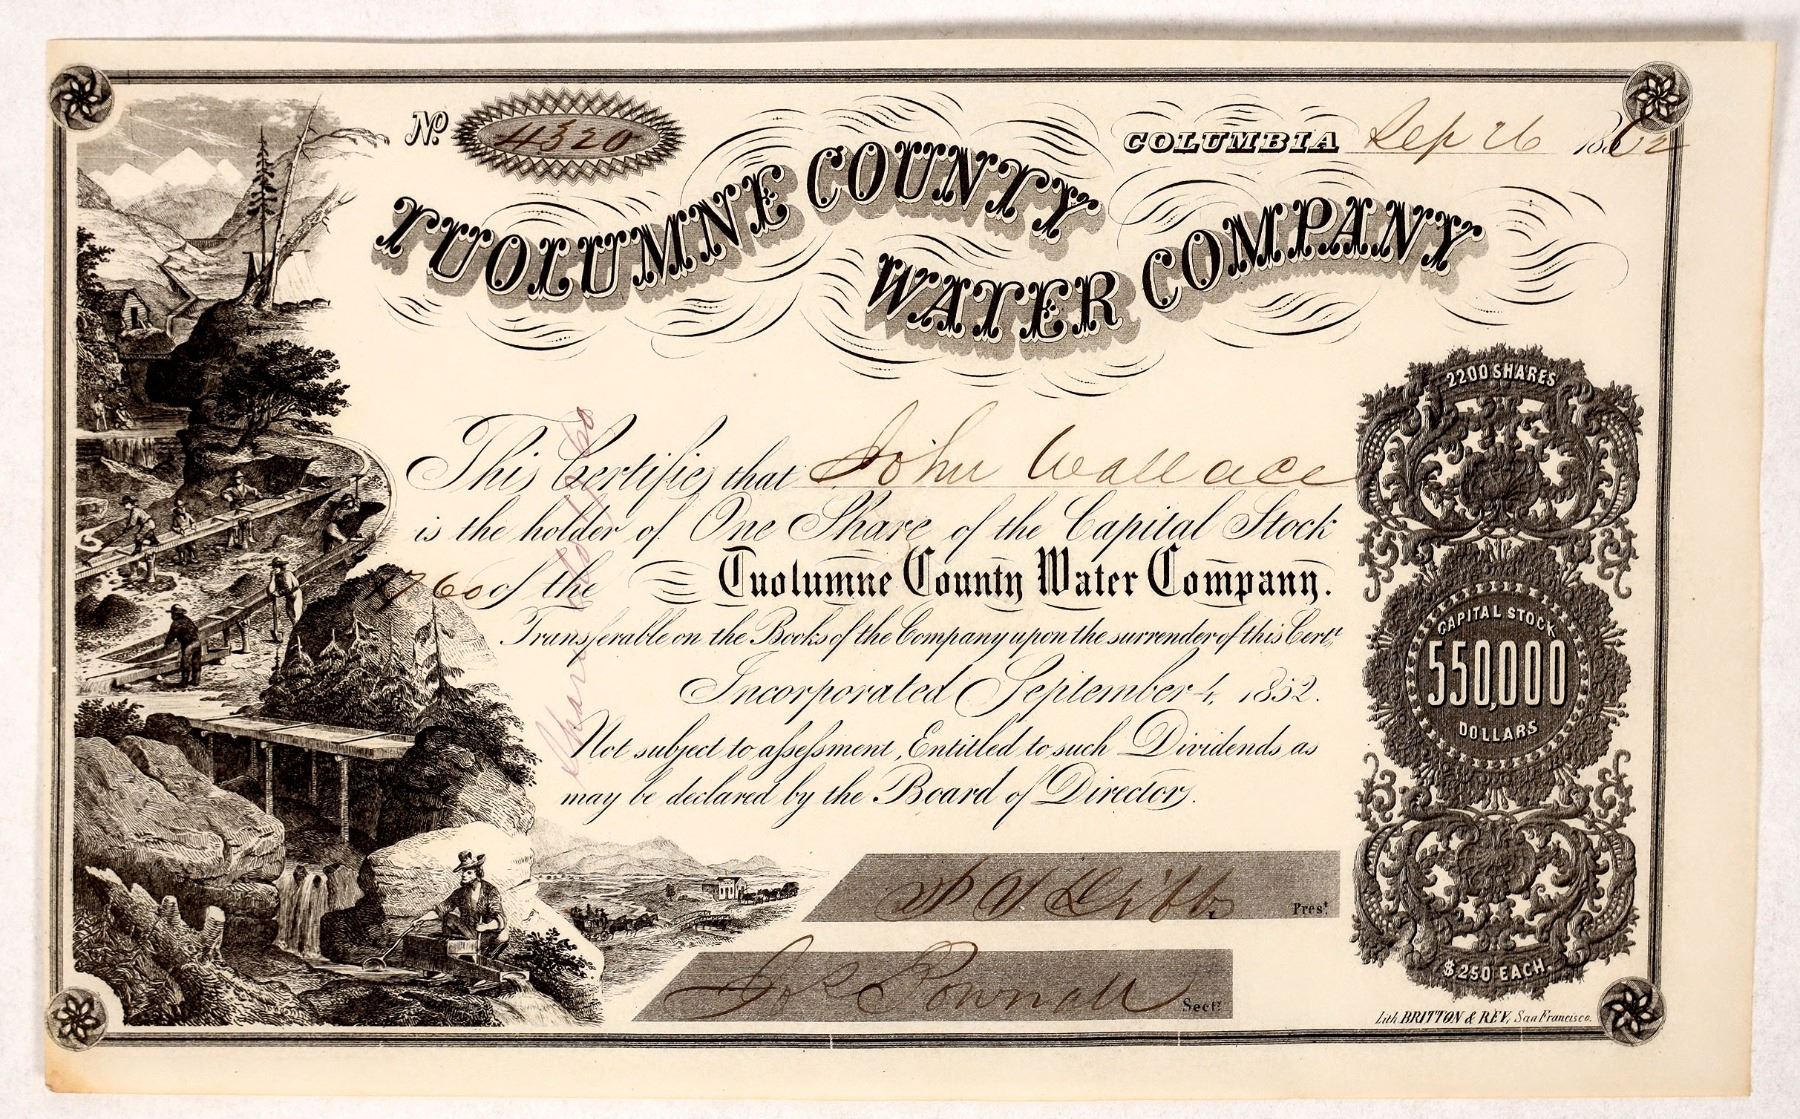 No. 4320
COLUMBIA Sep 26 1862
TUOLUMNE COUNTY
WATER COMPANY
This Certifies that John Wallace
is the holder of One Share of the Capital Stock
of the Tuolumne County Water Company.
Transferable on the Books of the Company upon the surrender of this Cert.
Incorporated September 4, 1852.
Not subject to assessment, Entitled to such Dividends as
may be declared by the Board of Directors.
2200 SHARES
CAPITAL STOCK
550,000
DOLLARS
$250 EACH
Dibb Prest
Jos Pownall Secty
Lith BRITTON & REY, San Francisco.